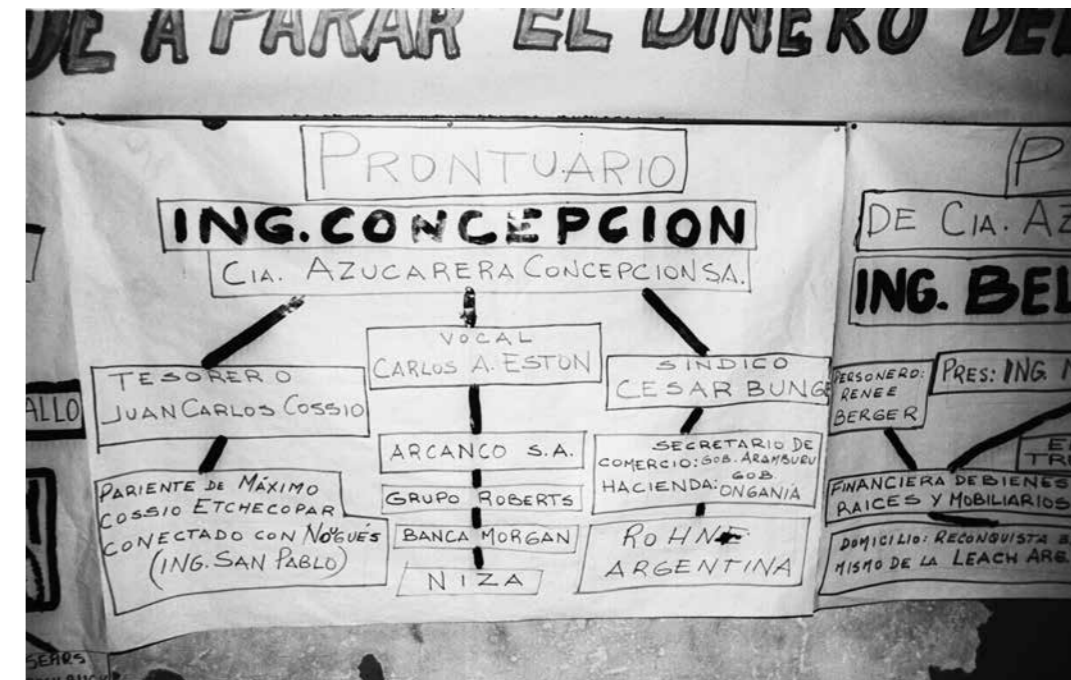 DE A PARAR EL DINERO DEL
PRONTUARIO
ING. CONCEPCION
CIA. AZUCARERA CONCEPCION S.A.
TESORERO
JUAN CARLOS COSSIO
PARIENTE DE MÁXIMO
COSSIO ETCHECOPAR
CONECTADO CON NOGUÉS
(ING. SAN PABLO)
VOCAL
CARLOS A. ESTON
ARCANCO S.A.
GRUPO ROBERTS
BANCA MORGAN
NIZA
SINDICO
CESAR BUNGE
SECRETARIO DE
COMERCIO: GOB. ARAMBURU
HACIENDA: GOB. ONGANIA
ROHNE
ARGENTINA
P
DE CIA. AZ
ING. BEL
PERSONERO:
RENEE
BERGER
PRES: ING.
FINANCIERA DE BIENES
RAICES Y MOBILIARIOS
DOMICILIO: RECONQUISTA
MISMO DE LA LEACH ARG
ALLO
SEARS